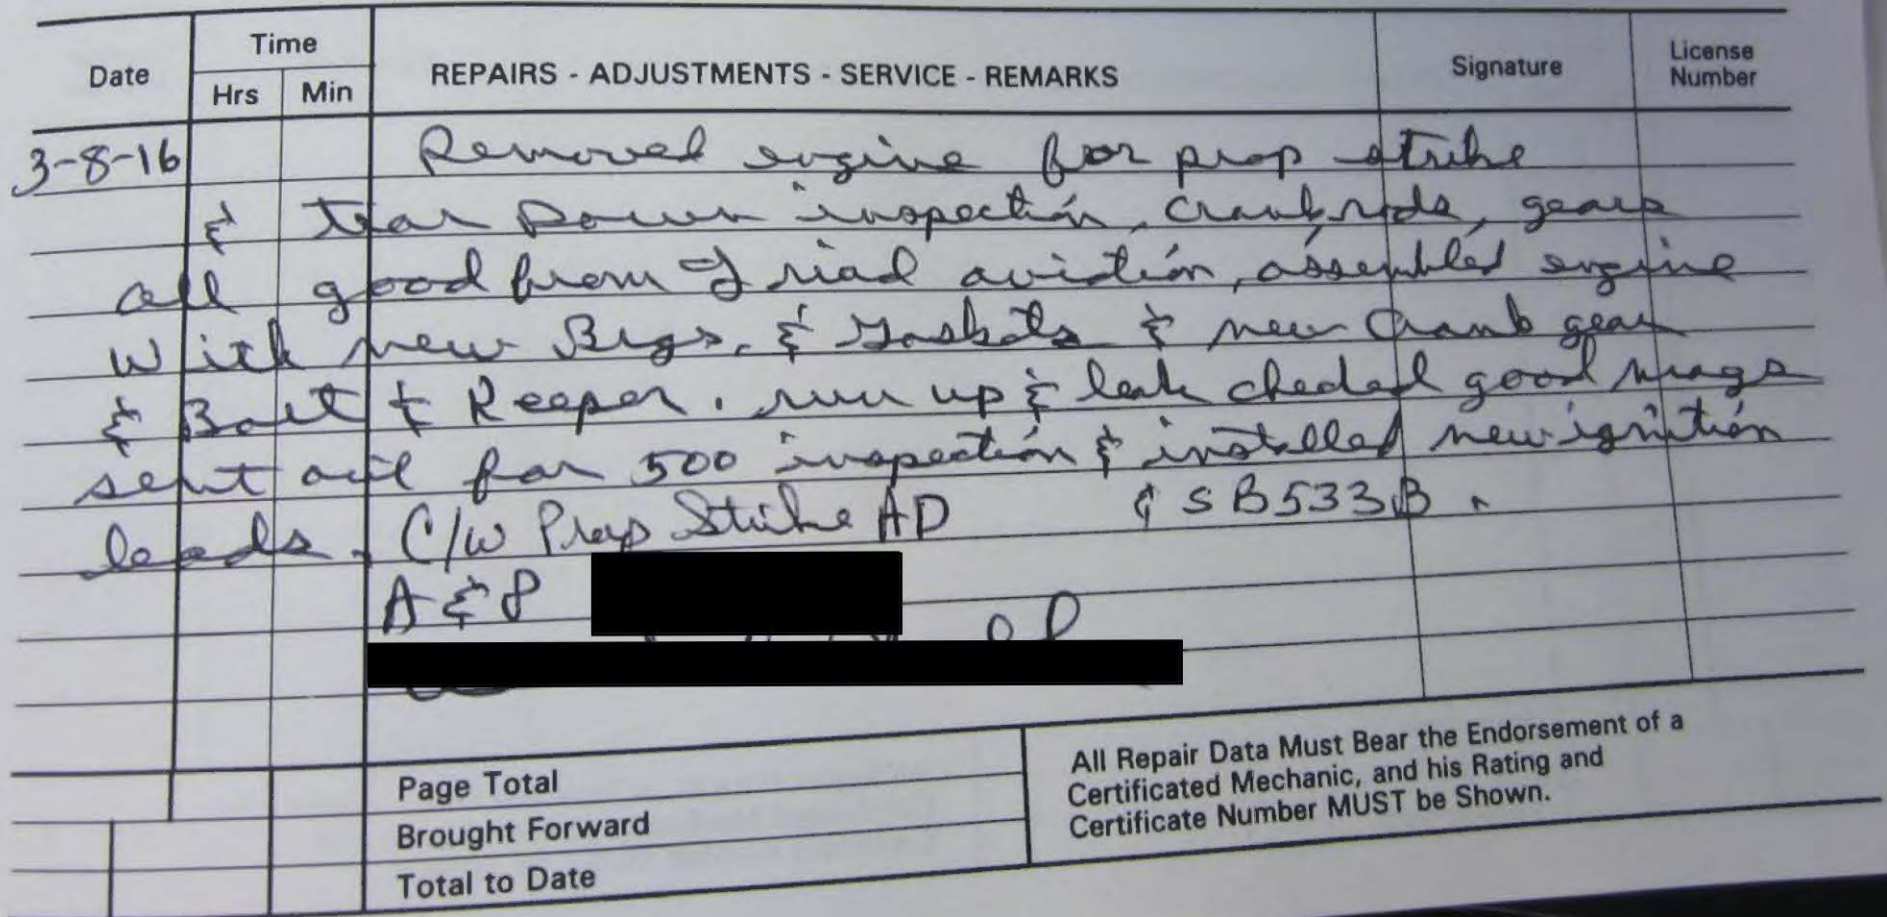 Date Time Hrs Min REPAIRS - ADJUSTMENTS - SERVICE - REMARKS Signature License Number
3-8-16 Removed engine for prop strike
& tear Down inspection, crank, rods, gears
all good from Triad aviation, assembled engine
with new Brgs. & Gaskets & new Crank gear
& Bolt & Keeper. run up & leak checked good mags
sent out for 500 inspection & installed new ignition
leads. C/W Prop Strike AD & SB533B.
A & P
Page Total
Brought Forward
Total to Date
All Repair Data Must Bear the Endorsement of a
Certificated Mechanic, and his Rating and
Certificate Number MUST be Shown.